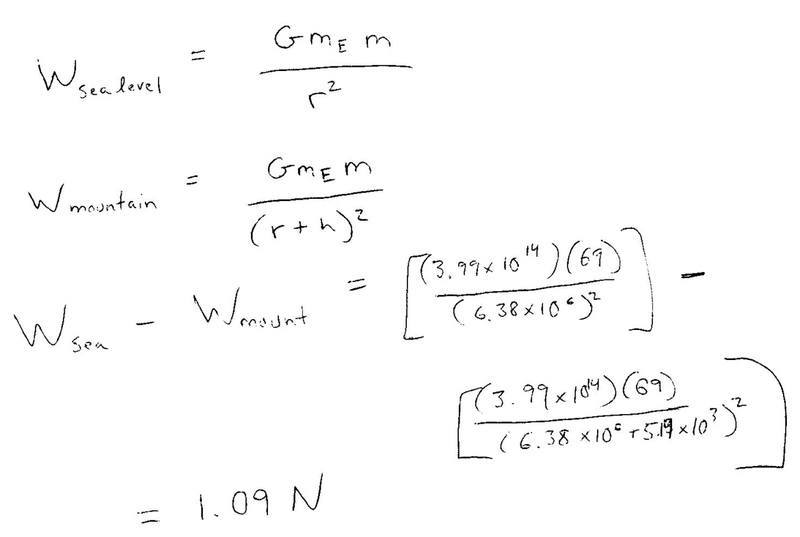 W_sea level = G m_E m / r²
W_mountain = G m_E m / (r + h)²
W_sea − W_mount = [(3.99 × 10¹⁴)(69) / (6.38 × 10⁶)²] −
[(3.99 × 10¹⁴)(69) / (6.38 × 10⁶ + × 10³)²]
= 1.09 N